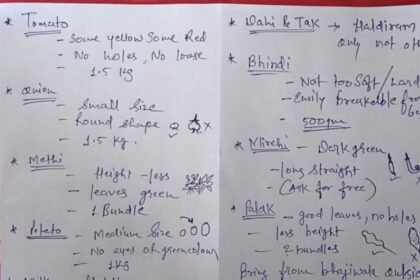 * Tomato
- Some yellow Some Red
- No holes, No loose
1.5 kg
* Onion
- Small Size
- Round shape
- 1.5 kg.
* Methi
- Height - less
- leaves green
- 1 Bundle
* Poteto
- Medium Size
- No eyes of green colour
- 1 kg
* Dahi & Tak → Haldiram
only not
* Bhindi
- Not too Soft / Hard
- Easily breakable
- 500gm
* Mirchi - Derk green
- long straight
- (Ask for free)
* Palak - good leaves, no holes
- less height
- 2 bundles
Bring from bhajiwala